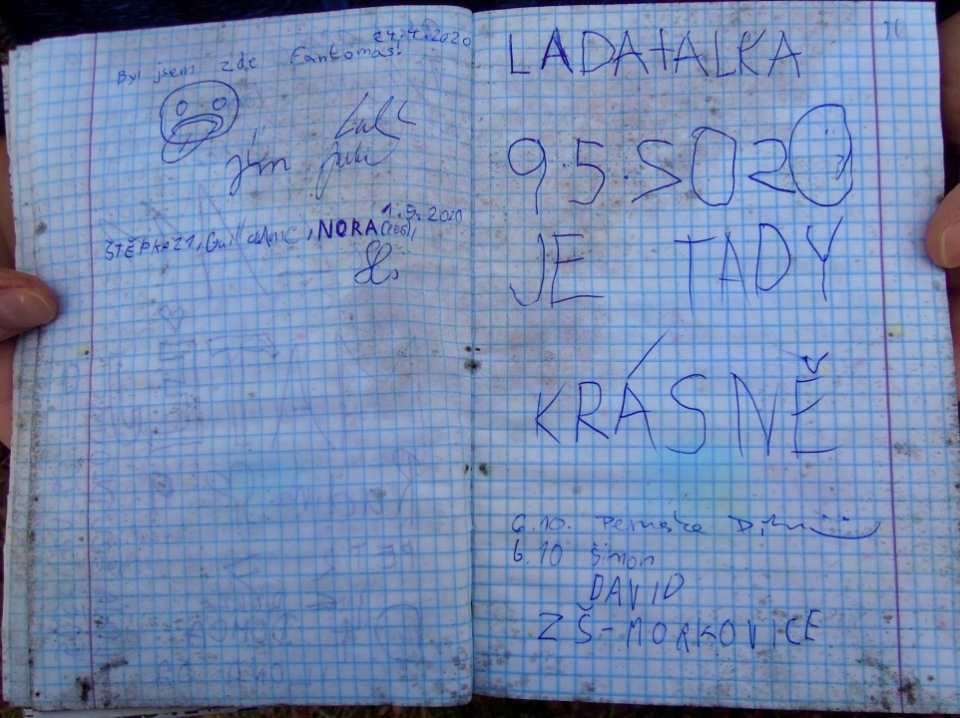 24.4.2020
Byl jsem zde Fantomas!
Jím
1.5.2020
ŠTĚPKA21, Guillaume, NORA
LADA+ALKA
9.5.SO20
JE TADY
KRÁSNĚ
6.10.
6.10 Šimon
DAVID
ZŠ-MORKOVICE